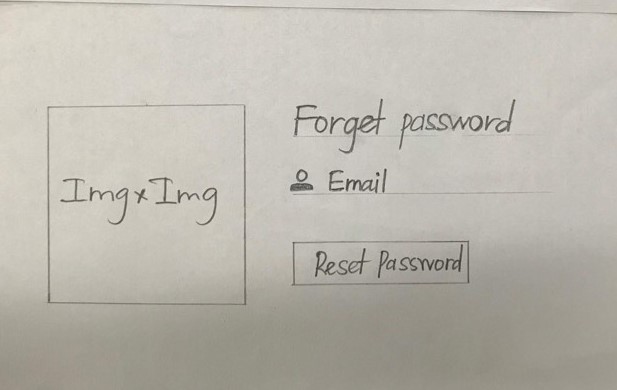 Img x Img
Forget password
Email
Reset Password